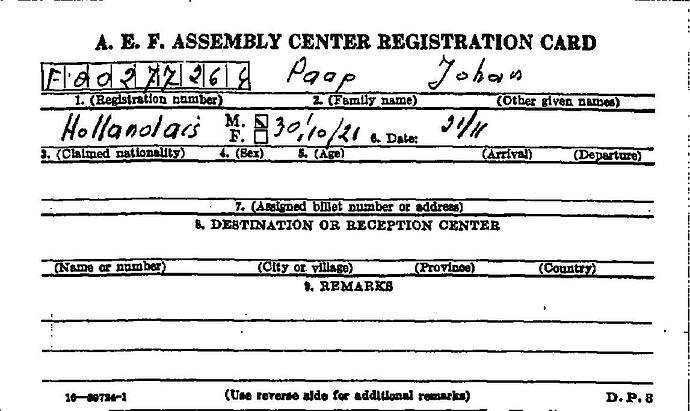 A. E. F. ASSEMBLY CENTER REGISTRATION CARD
Paap Johan
1. (Registration number) 2. (Family name) (Other given names)
Hollandais M. F. 30/10/21 6. Date: 21/4
3. (Claimed nationality) 4. (Sex) 5. (Age) (Arrival) (Departure)
7. (Assigned billet number or address)
8. DESTINATION OR RECEPTION CENTER
(Name or number) (City or village) (Province) (Country)
9. REMARKS
16—39724-1 (Use reverse side for additional remarks) D. P. 3